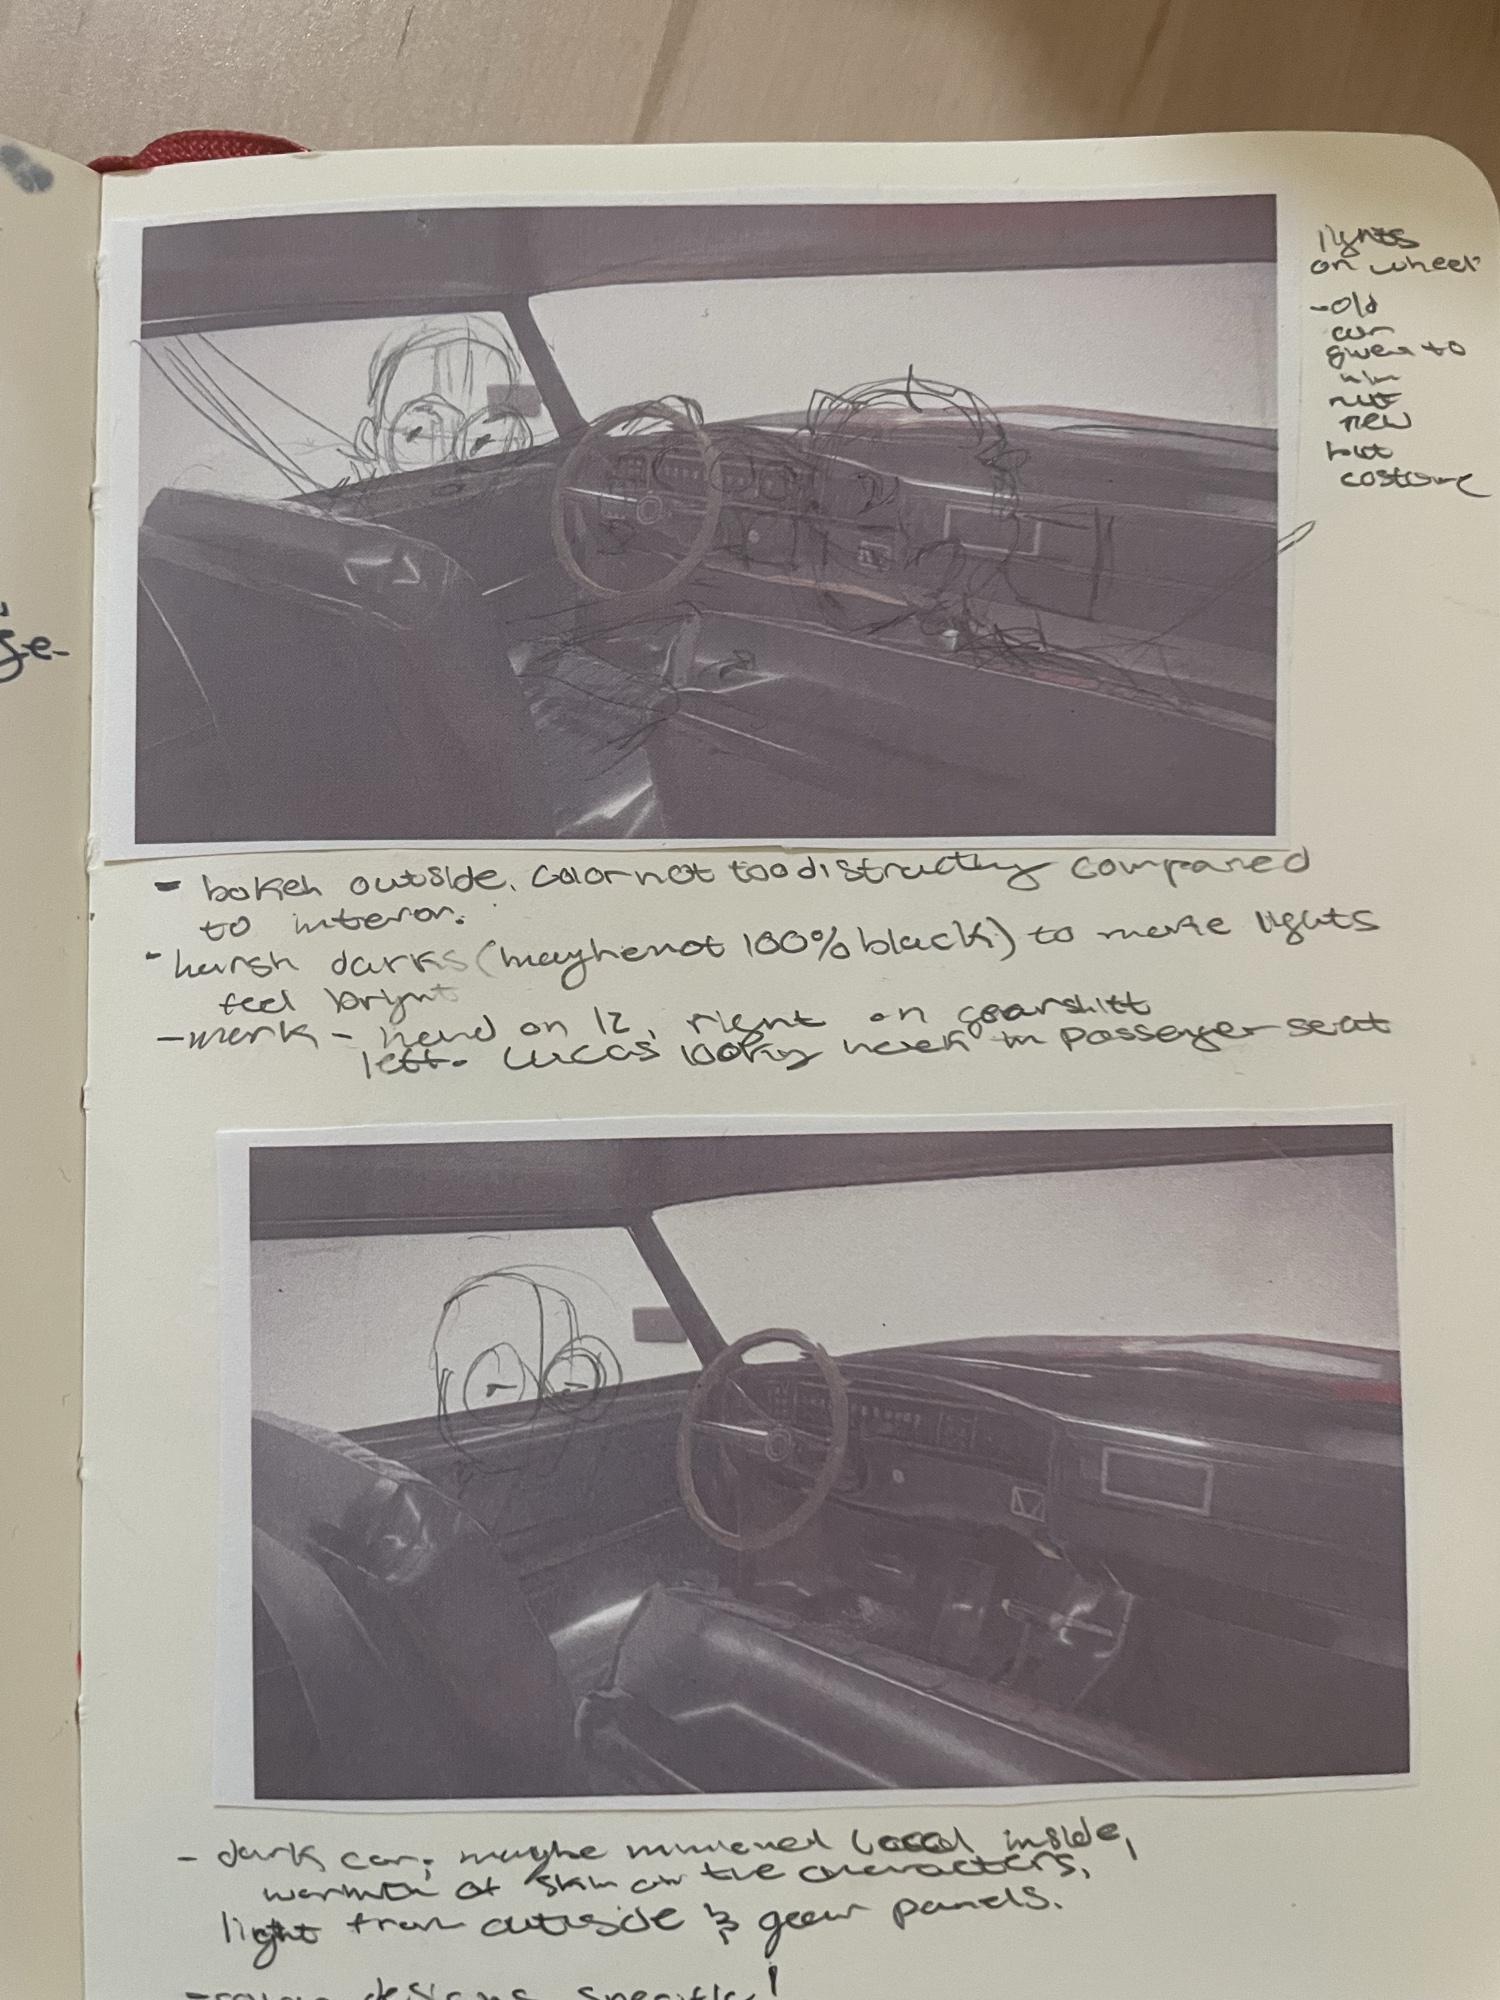 lights
on wheel
- old
car
given to
him
not
new
but
costume
ge-
- bokeh outside. Color not too distracting compared
to interior.
- harsh darks (maybe not 100% black) to make lights
feel bright
- mark - hand on 12, right on gearshift
left. Lucas looking in passenger seat
- dark car; maybe inside,
warmth of skin on the characters,
light from outside & gear panels.
designs specific!